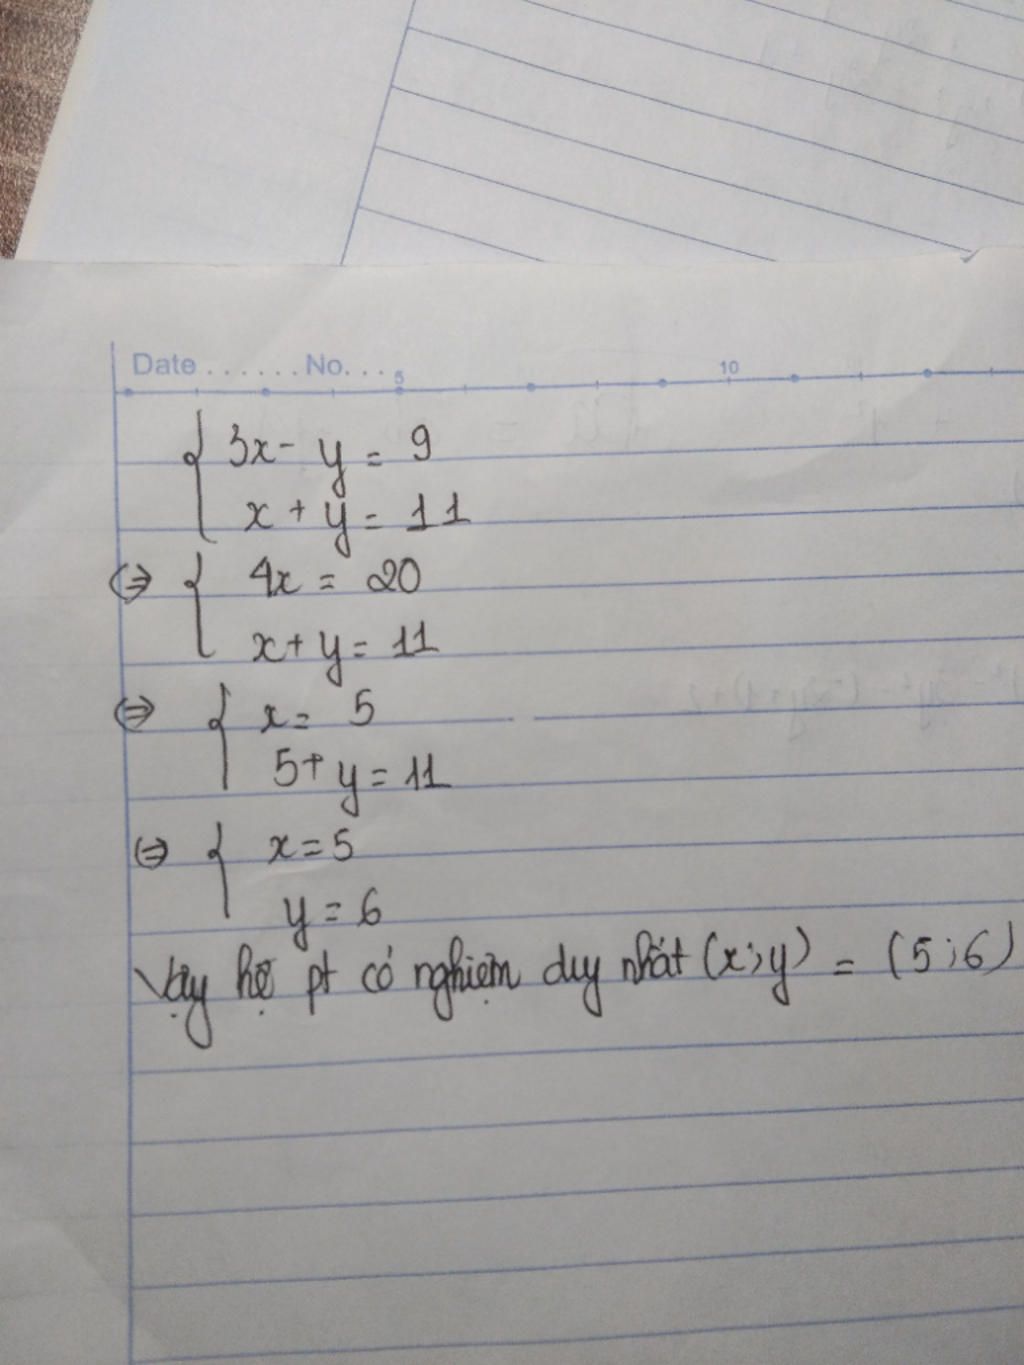 Date ...... No....
5 10
{ 3x - y = 9
x + y = 11
⇔ { 4x = 20
x + y = 11
⇔ { x = 5
5 + y = 11
⇔ { x = 5
y = 6
Vậy hệ pt có nghiệm duy nhất (x;y) = (5;6)